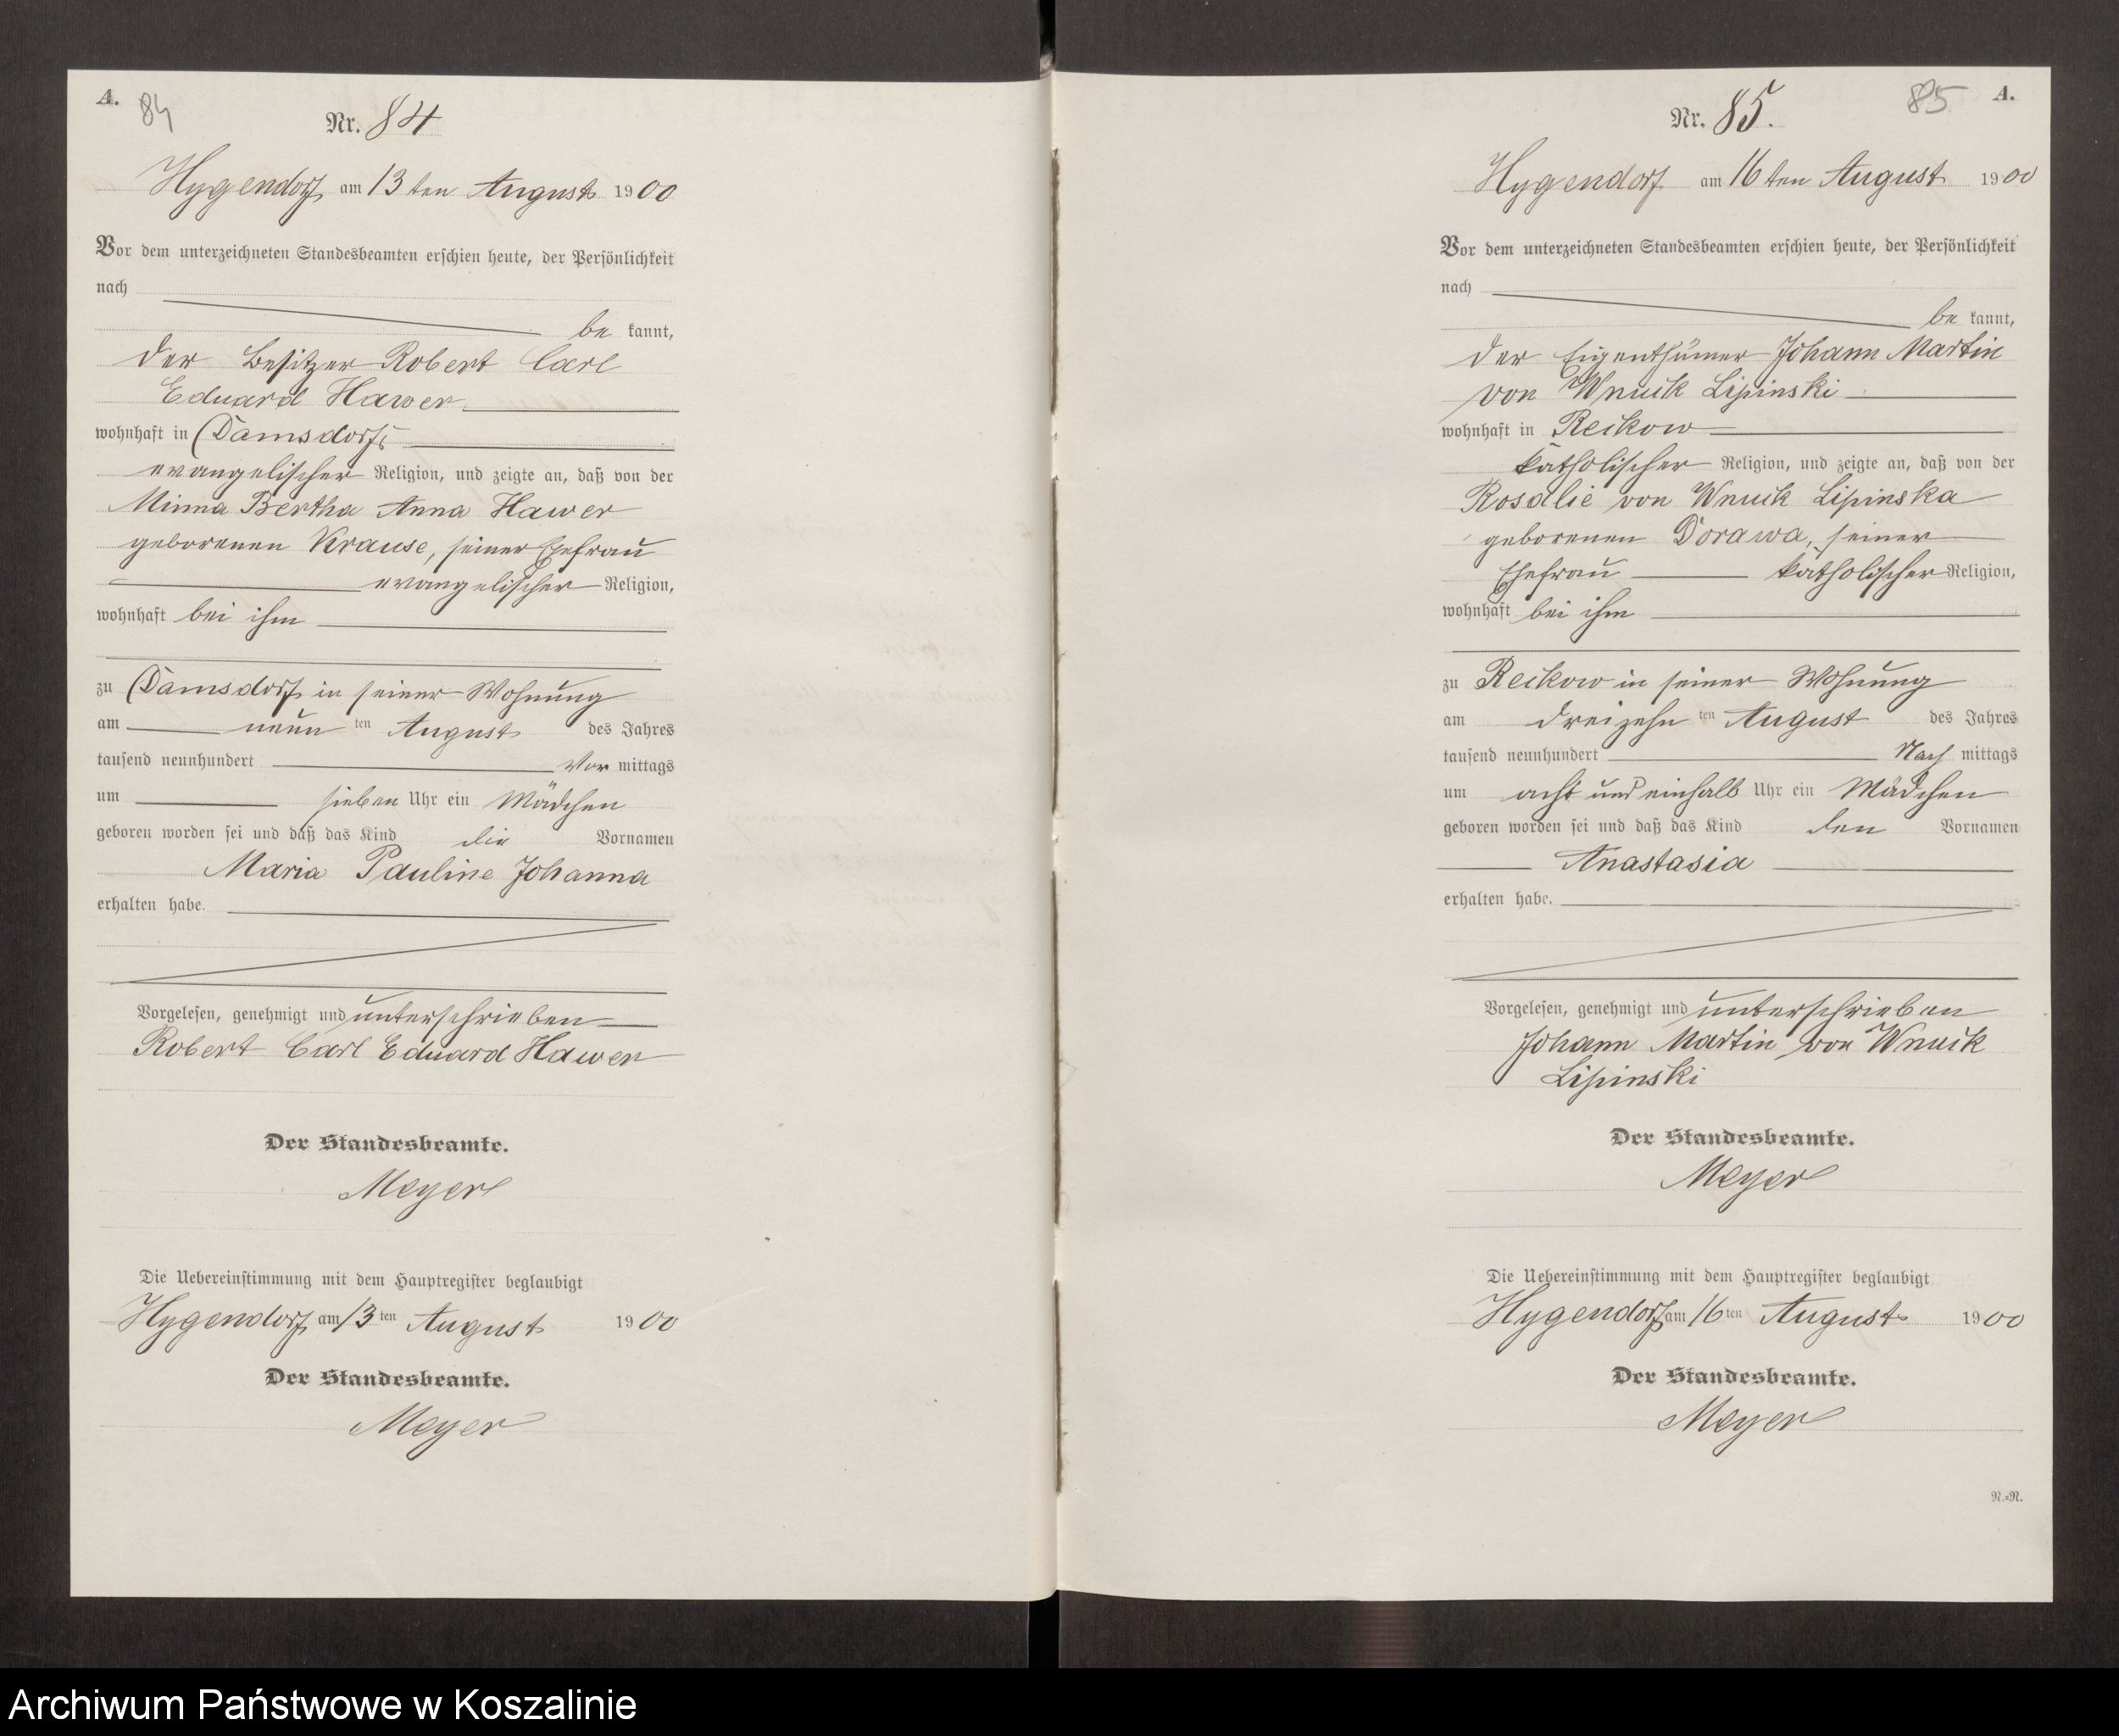 A.
84
Nr. 84
Hygendorf am 13ten August 1900
Vor dem unterzeichneten Standesbeamten erschien heute, der Persönlichkeit
nach
be kannt,
der Besitzer Robert Carl
Eduard Hawer
wohnhaft in Damsdorf
evangelischer Religion, und zeigte an, daß von der
Minna Bertha Anna Hawer
geborenen Krause, seiner Ehefrau
evangelischer Religion,
wohnhaft bei ihm
zu Damsdorf in seiner Wohnung
am neun ten August des Jahres
tausend neunhundert Vor mittags
um sieben Uhr ein Mädchen
geboren worden sei und daß das Kind die Vornamen
Maria Pauline Johanna
erhalten habe.
Vorgelesen, genehmigt und unterschrieben
Robert Carl Eduard Hawer
Der Standesbeamte.
Meyer
Die Uebereinstimmung mit dem Hauptregister beglaubigt
Hygendorf am 13ten August 1900
Der Standesbeamte.
Meyer
85 A.
Nr. 85.
Hygendorf am 16ten August 1900
Vor dem unterzeichneten Standesbeamten erschien heute, der Persönlichkeit
nach
be kannt,
der Eigenthümer Johann Martin
von Wnuik Lipinski
wohnhaft in Reikow
katholischer Religion, und zeigte an, daß von der
Rosalie von Wnuik Lipinska
geborenen Dorawa, seiner
Ehefrau katholischer Religion,
wohnhaft bei ihm
zu Reikow in seiner Wohnung
am dreizehn ten August des Jahres
tausend neunhundert Nach mittags
um acht und einhalb Uhr ein Mädchen
geboren worden sei und daß das Kind den Vornamen
Anastasia
erhalten habe.
Vorgelesen, genehmigt und unterschrieben
Johann Martin von Wnuik
Lipinski
Der Standesbeamte.
Meyer
Die Uebereinstimmung mit dem Hauptregister beglaubigt
Hygendorf am 16ten August 1900
Der Standesbeamte.
Meyer
N.=N.
Archiwum Państwowe w Koszalinie